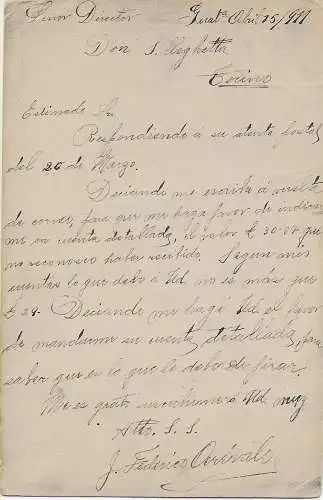 Señor Director Abril 15/911
Don S.
Torino
Estimado Sr
Respondiendo a su atenta postal
del 26 de Marzo.
Deseando me escriba á vuelta
de correo, para que me haga favor de indicar
me su cuenta detallada, el valor £ 30-07 que
no reconosco haber recibido. Segun mis
cuentas lo que debo á Ud. no es más que
£ 24- Deseando me haga Ud. el favor
de mandarme su cuenta detallada, para
saber que es lo que le debo de girar.
Me es grato suscribirme á Ud. muy
Atto. S. S.
J. Federico